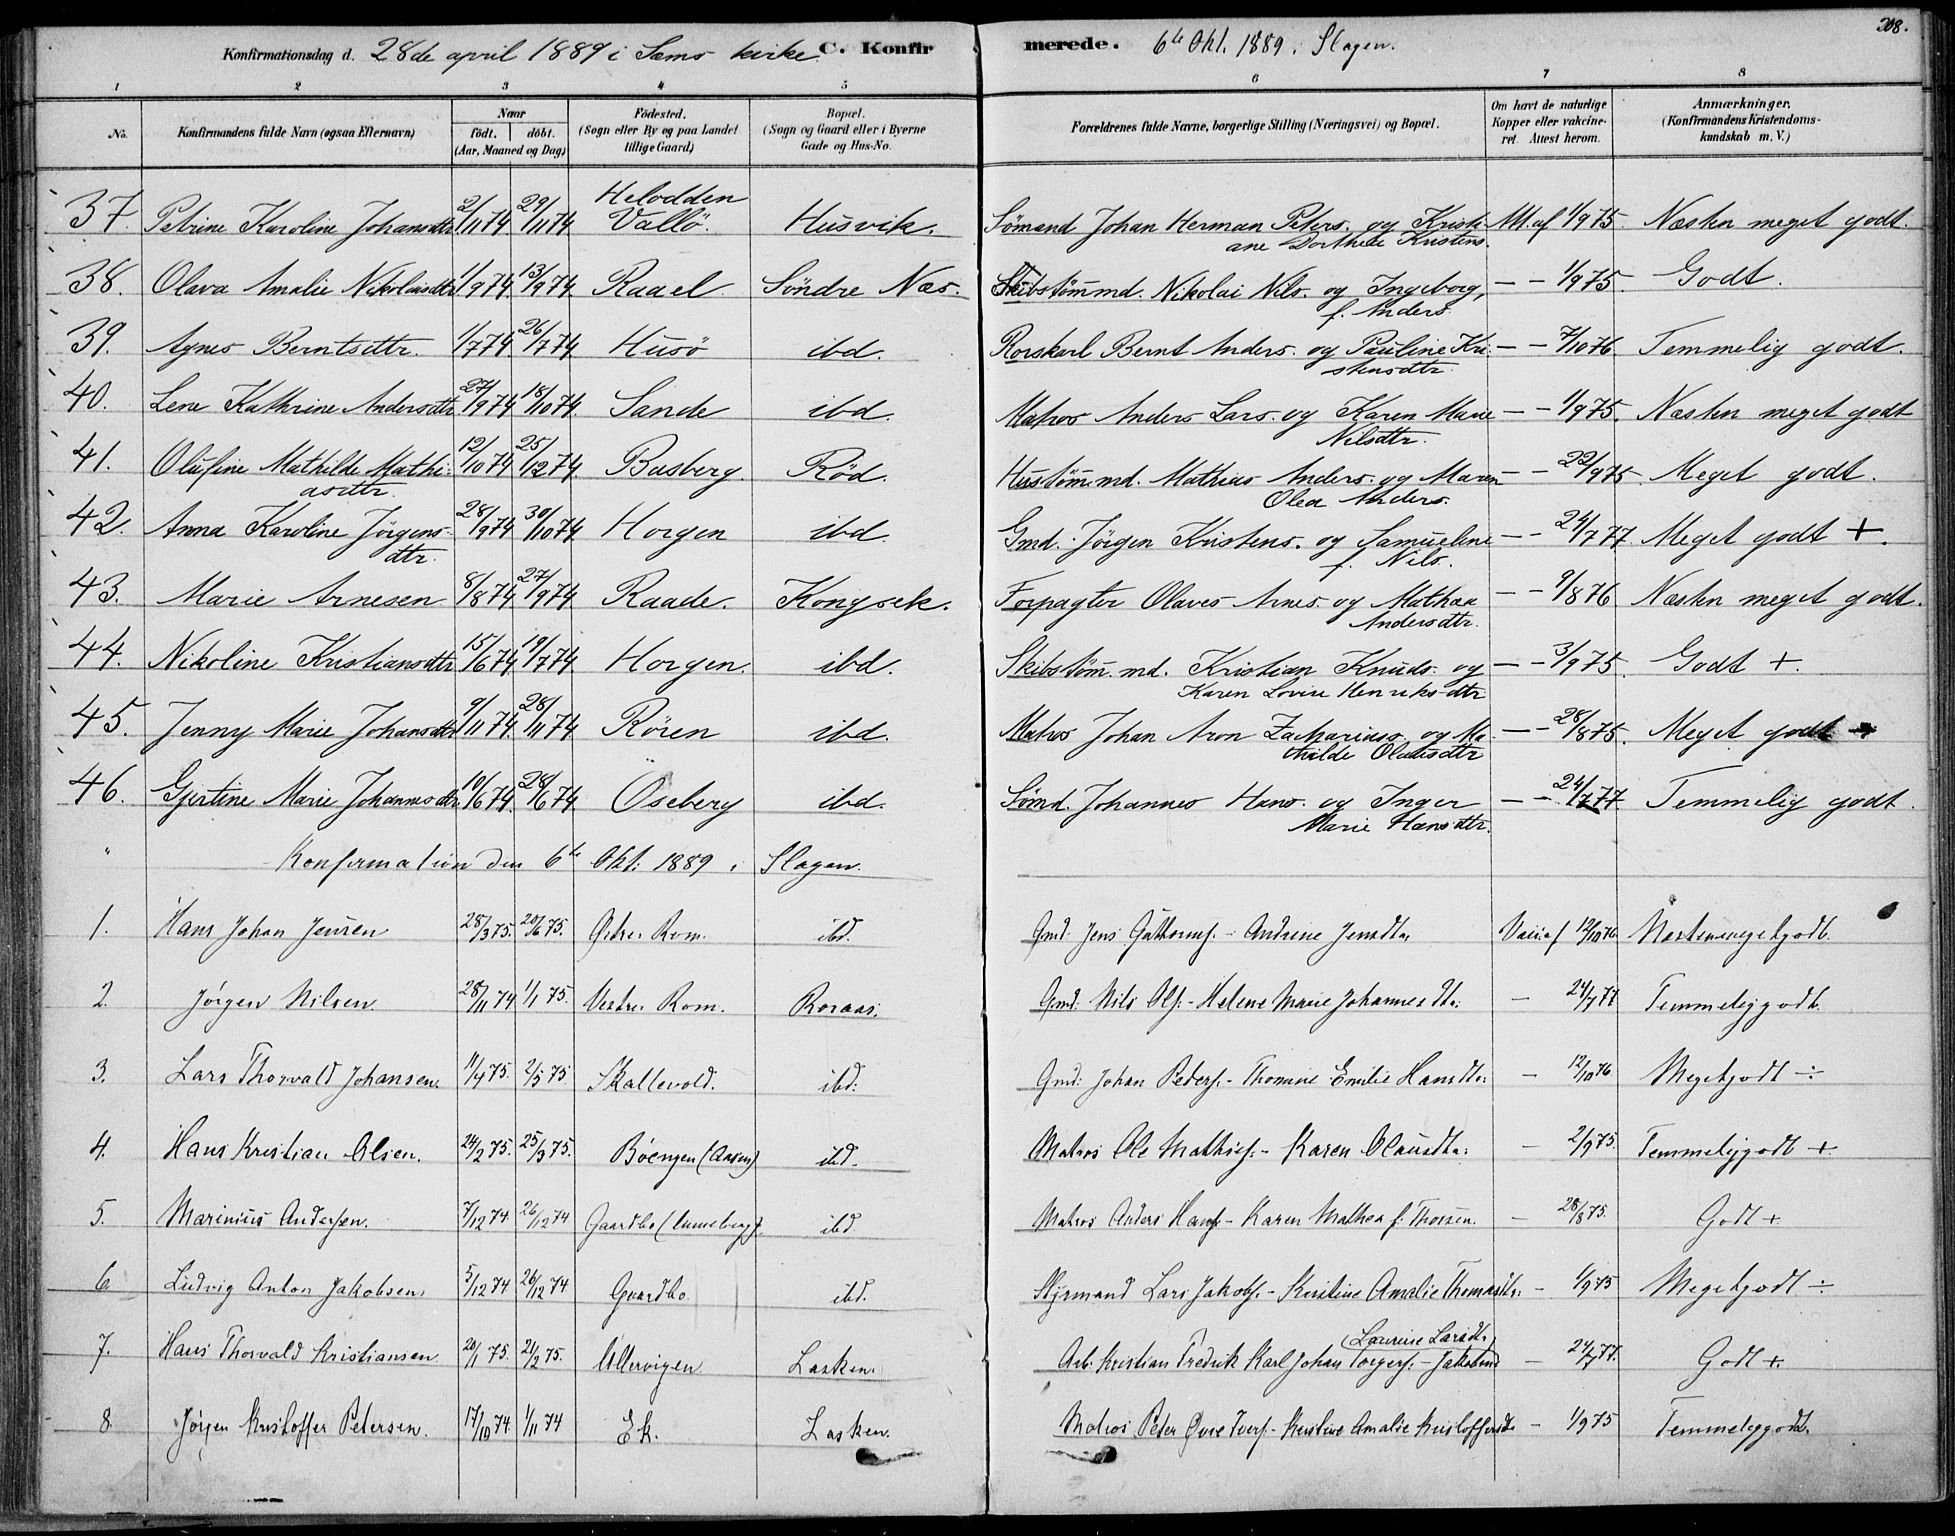 208.
Konfirmationsdag d. 28de april 1889 i Sems kirke. C. Konfirmerede. 6te Okt. 1889 i Slagen.
1 2 3 4 5 6 7 8
No. Konfirmandens fulde Navn (ogsaa Efternavn) Naar født. døbt. (Aar, Maaned og Dag) Fødested. (Sogn eller By og paa Landet tillige Gaard) Bopæl. (Sogn og Gaard eller i Byerne Gade og Hus-No. Forældrenes fulde Navne, borgerlige Stilling (Næringsvei) og Bopæl. Om havt de naturlige Kopper eller vaccineret. Attest herom. Anmærkninger. (Konfirmandens Kristendomskundskab m. V.)
37. Petrine Karoline Johansdtr 2/11 74 29/11 74 Helvdden Vallö. Husvik. Sömand Johan Herman Peters. og Kristiane Dorthede Kristens. Att. af 1/9 75. Næsten meget godt.
38. Olava Amalie Nikolaisdtr 1/9 74 13/9 74. Raael Söndre Næs. Skibstömmd. Nikolai Nils. og Ingeborg, f. Anders. — - 1/9 75. Godt.
39. Agnes Berntsdtr. 1/7 74 26/7 74 Husö ibd. Rorskarl Bernt Anders. og Pauline Kristensdtr — - 7/10 76. Temmelig godt.
40. Lene Kathrine Andersdtr 27/9 74 18/10 74. Sande ibd. Matros Anders Lars. og Karen Marie Nilsdtr. — - 1/9 75. Næsten meget godt
41. Olufine Mathilde Mathiasdtr. 12/10 74 25/12 74. Basberg Röd. Hustömmd. Mathias Anders. og Maren Olea Anders. — - 22/9 75 Meget godt.
42. Anna Karoline Jörgensdtr. 28/9 74 30/10 74. Horgen ibd. Gmd. Jörgen Kristens. og Samueline f. Nils. — - 24/7 77. Meget godt +.
43. Marie Arnesen 8/8 74 27/9 74 Raade. Kongsek. Forpagter Olaves Arnes. og Mathea Andersdtr. — - 9/8 76 Næsten meget godt.
44. Nikoline Kristiansdtr 15/6 74 19/7 74 Horgen. ibd. Skibstöm. md. Kristian Knuds. og Karen Lovise Henriksdtr — - 3/9 75. Godt +.
45. Jenny Marie Johansdtr 9/11 74. 28/11 74 Rören ibd. Matros Johan Aron Zachariass. og Mathilde Olausdtr — - 28/8 75. Meget godt
46. Gjertine Marie Johannesdtr. 10/6 74. 28/6 74 Oseberg ibd. Sömd. Johannes Hans. og Inger Marie Hansdtr. — - 24/7 77 Temmelig godt.
Konfirmation den 6te Okt: 1889 i Slagen.
1. Hans Johan Jensen 28/3 75. 20/6 75. Østre Rom. ibd. Gmd. Jens Guttormss. - Andrine Jensdtr. Vac. af 12/10 76. Næsten meget godt.
2. Jörgen Nilsen. 28/11 74 1/1 75. Vestre Rom. Roraas. Gmd. Nils Ols. - Helene Marie Johannesdtr. — 24/7 77 Temmelig godt.
3. Lars Thorvald Johansen. 11/4 75. 2/5 75 Skallevold. ibd: Gmd: Johan Peders. - Thomine Emilie Hansdtr. — 12/10 76 Meget godt ÷
4. Hans Kristian Olsen. 24/2 75. 25/3 75. Böengen (Aasen) ibd. Matros Ole Mathis. - Karen Olausdtr: — 2/9 75. Temmelig godt +
5. Marinius Andersen. 7/12 74 26/12 74 Gaardbo (Lunneberg). ibd Matros Anders Hans. - Karen Mathea f. Thorsen. — 28/8 75. Godt +
6. Ludvig Anton Jakobsen. 5/12 74 26/12 74 Gaardbo ibd. Styrmand Lars Jakobs. - Kristine Amalie Thomasdtr. — 1/9 75 Meget godt ÷
7. Hans Thorvald Kristiansen 20/1 75. 21/2 75. Ullevigen Lasken. Arb. Kristian Fredrik Karl Johan Torgers. - Jakobine (Laurine Larsdtr) — 24/7 77. Godt +
8. Jörgen Kristoffer Petersen. 17/10 74. 1/11 74 Ek. Lasken. Matros Peter Øvre Ivers. - Kristine Amalie Kristoffersdtr — 1/9 75 Temmelig godt.